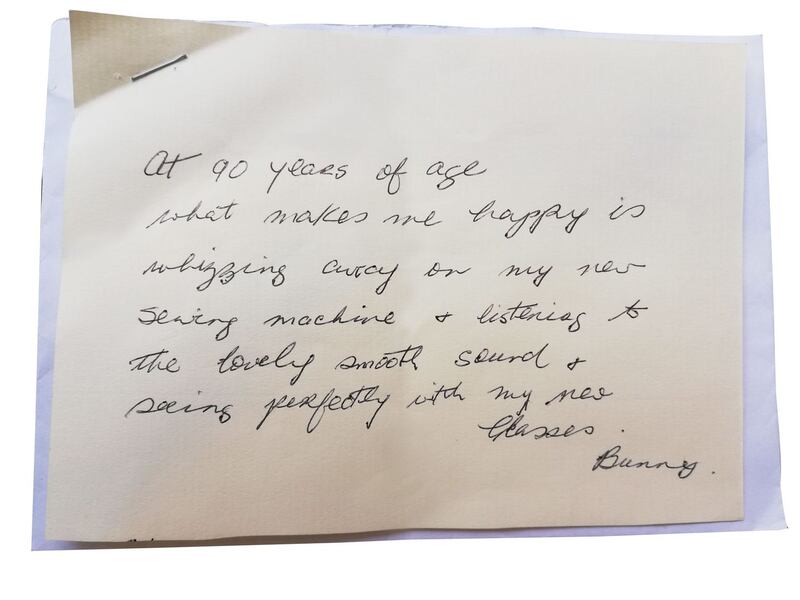 At 90 years of age
what makes me happy is
whizzing away on my new
sewing machine & listening to
the lovely smooth sound &
seeing perfectly with my new
Glasses.
Bunny.